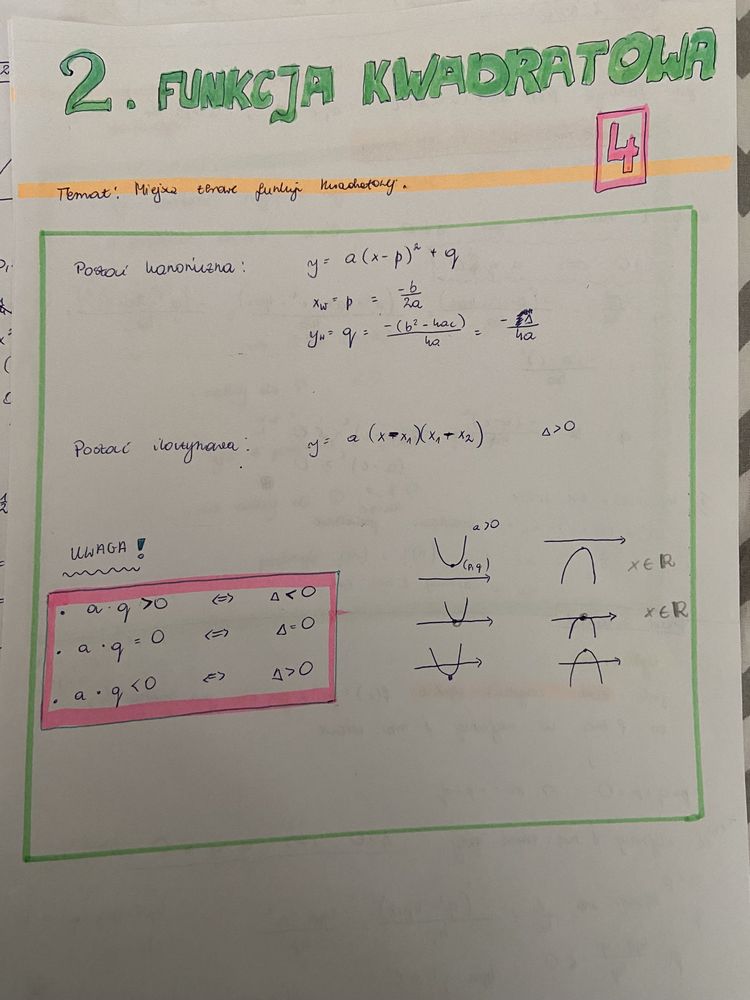 2. FUNKCJA KWADRATOWA
4
Temat: Miejsca zerowe funkcji kwadratowej.
Postać kanoniczna: y = a(x-p)² + q
x_w = p = -b/2a
y_w = q = -(b²-4ac)/4a = -Δ/4a
Postać iloczynowa: y = a(x-x₁)(x₁-x₂) Δ>0
UWAGA!
• a·q >0 <=> Δ<0
• a·q = 0 <=> Δ=0
• a·q <0 <=> Δ>0
a>0
(p,q)
x∈ℝ
x∈ℝ